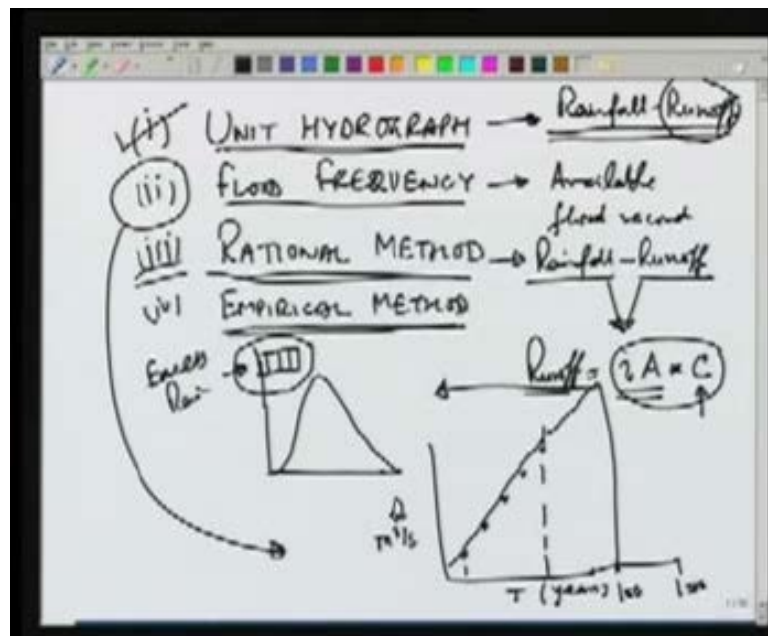 (i) UNIT HYDROGRAPH → Rainfall-Runoff
(ii) FLOOD FREQUENCY → Available
flood record
(iii) RATIONAL METHOD → Rainfall-Runoff
(iv) EMPIRICAL METHOD
Excess
Rain
Runoff = iA * C
Q
m³/s
T (years) 100